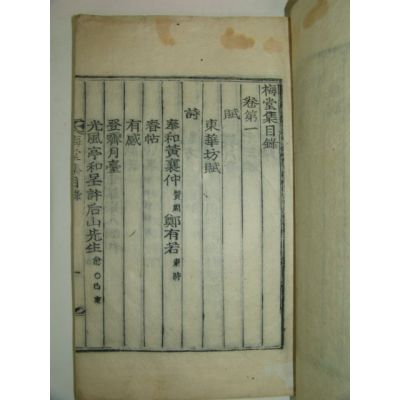 梅堂集目錄
卷第一
賦
東華坊賦
詩
奉和黃襄仲 鄭有若
春帖
有感
登齋月臺
光風亭和呈許后山先生
梅堂集目錄